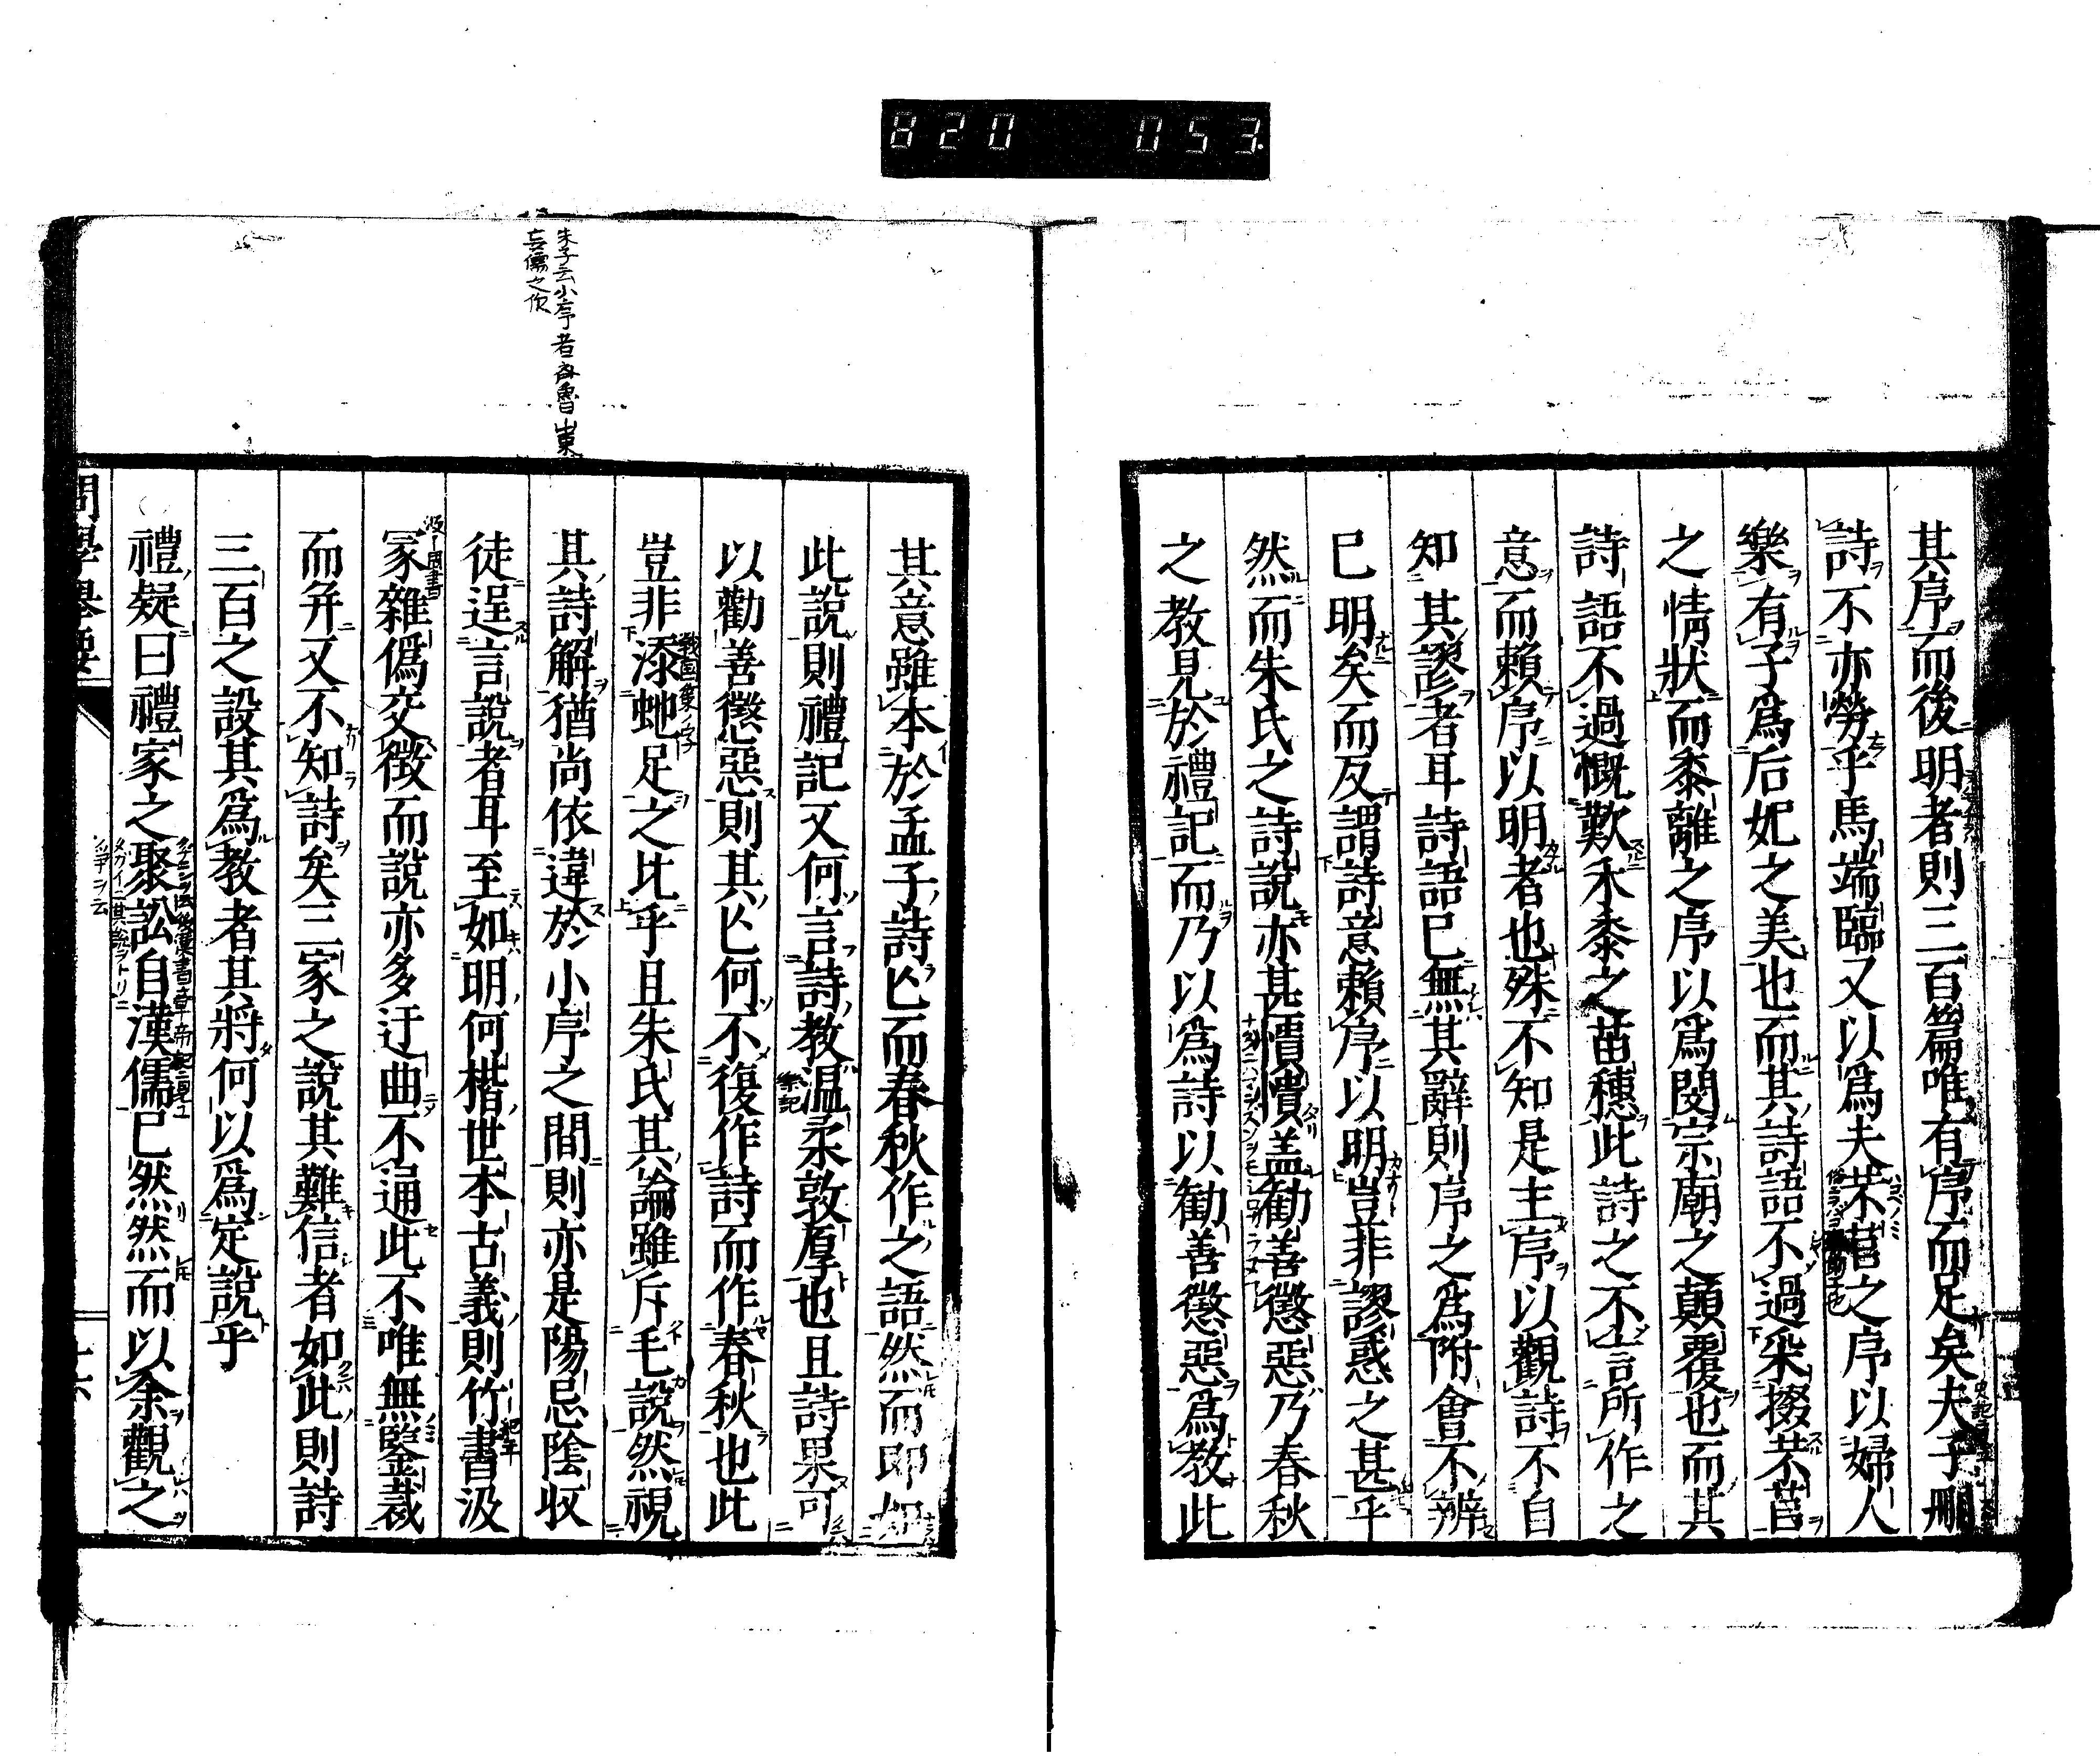 820 053
其序而後明者則三百篇唯有序而足矣夫子刪
詩不亦勞乎馬端臨又以爲夫芣苢之序以婦人
樂有子爲后妃之美也而其詩語不過采掇芣苢
之情狀而黍離之序以爲閔宗廟之顚覆也而其
詩語不過慨歎禾黍之苗穗此詩之不言所作之
意而賴序以明者也殊不知是主序以觀詩不自
知其謬者耳詩語已無其辭則序之爲附會不辨
已明矣而反謂詩意賴序以明豈非謬惑之甚乎
然而朱氏之詩說亦甚憒憒盖勸善懲惡乃春秋
之教見於禮記而乃以爲詩以勸善懲惡爲教此
朱子云小序者齊魯山東
妄儒之作
其意雖本於孟子詩亾而春秋作之語然而卽如
此說則禮記又何言詩教温柔敦厚也且詩果可
以勸善懲惡則其亾何不復作詩而作春秋也此
豈非添虵足之比乎且朱氏其論雖斥毛說然視
戰国策ノ字
其詩解猶尚依違於小序之間則亦是陽忌陰收
徒逞言說者耳至如明何楷世本古義則竹書汲
冢雜僞交徵而說亦多迂曲不通此不唯無鑒裁
而并又不知詩矣三家之說其難信者如此則詩
三百之設其爲教者其將何以爲定說乎
禮疑曰禮家之聚訟自漢儒已然然而以余觀之
問學擧要